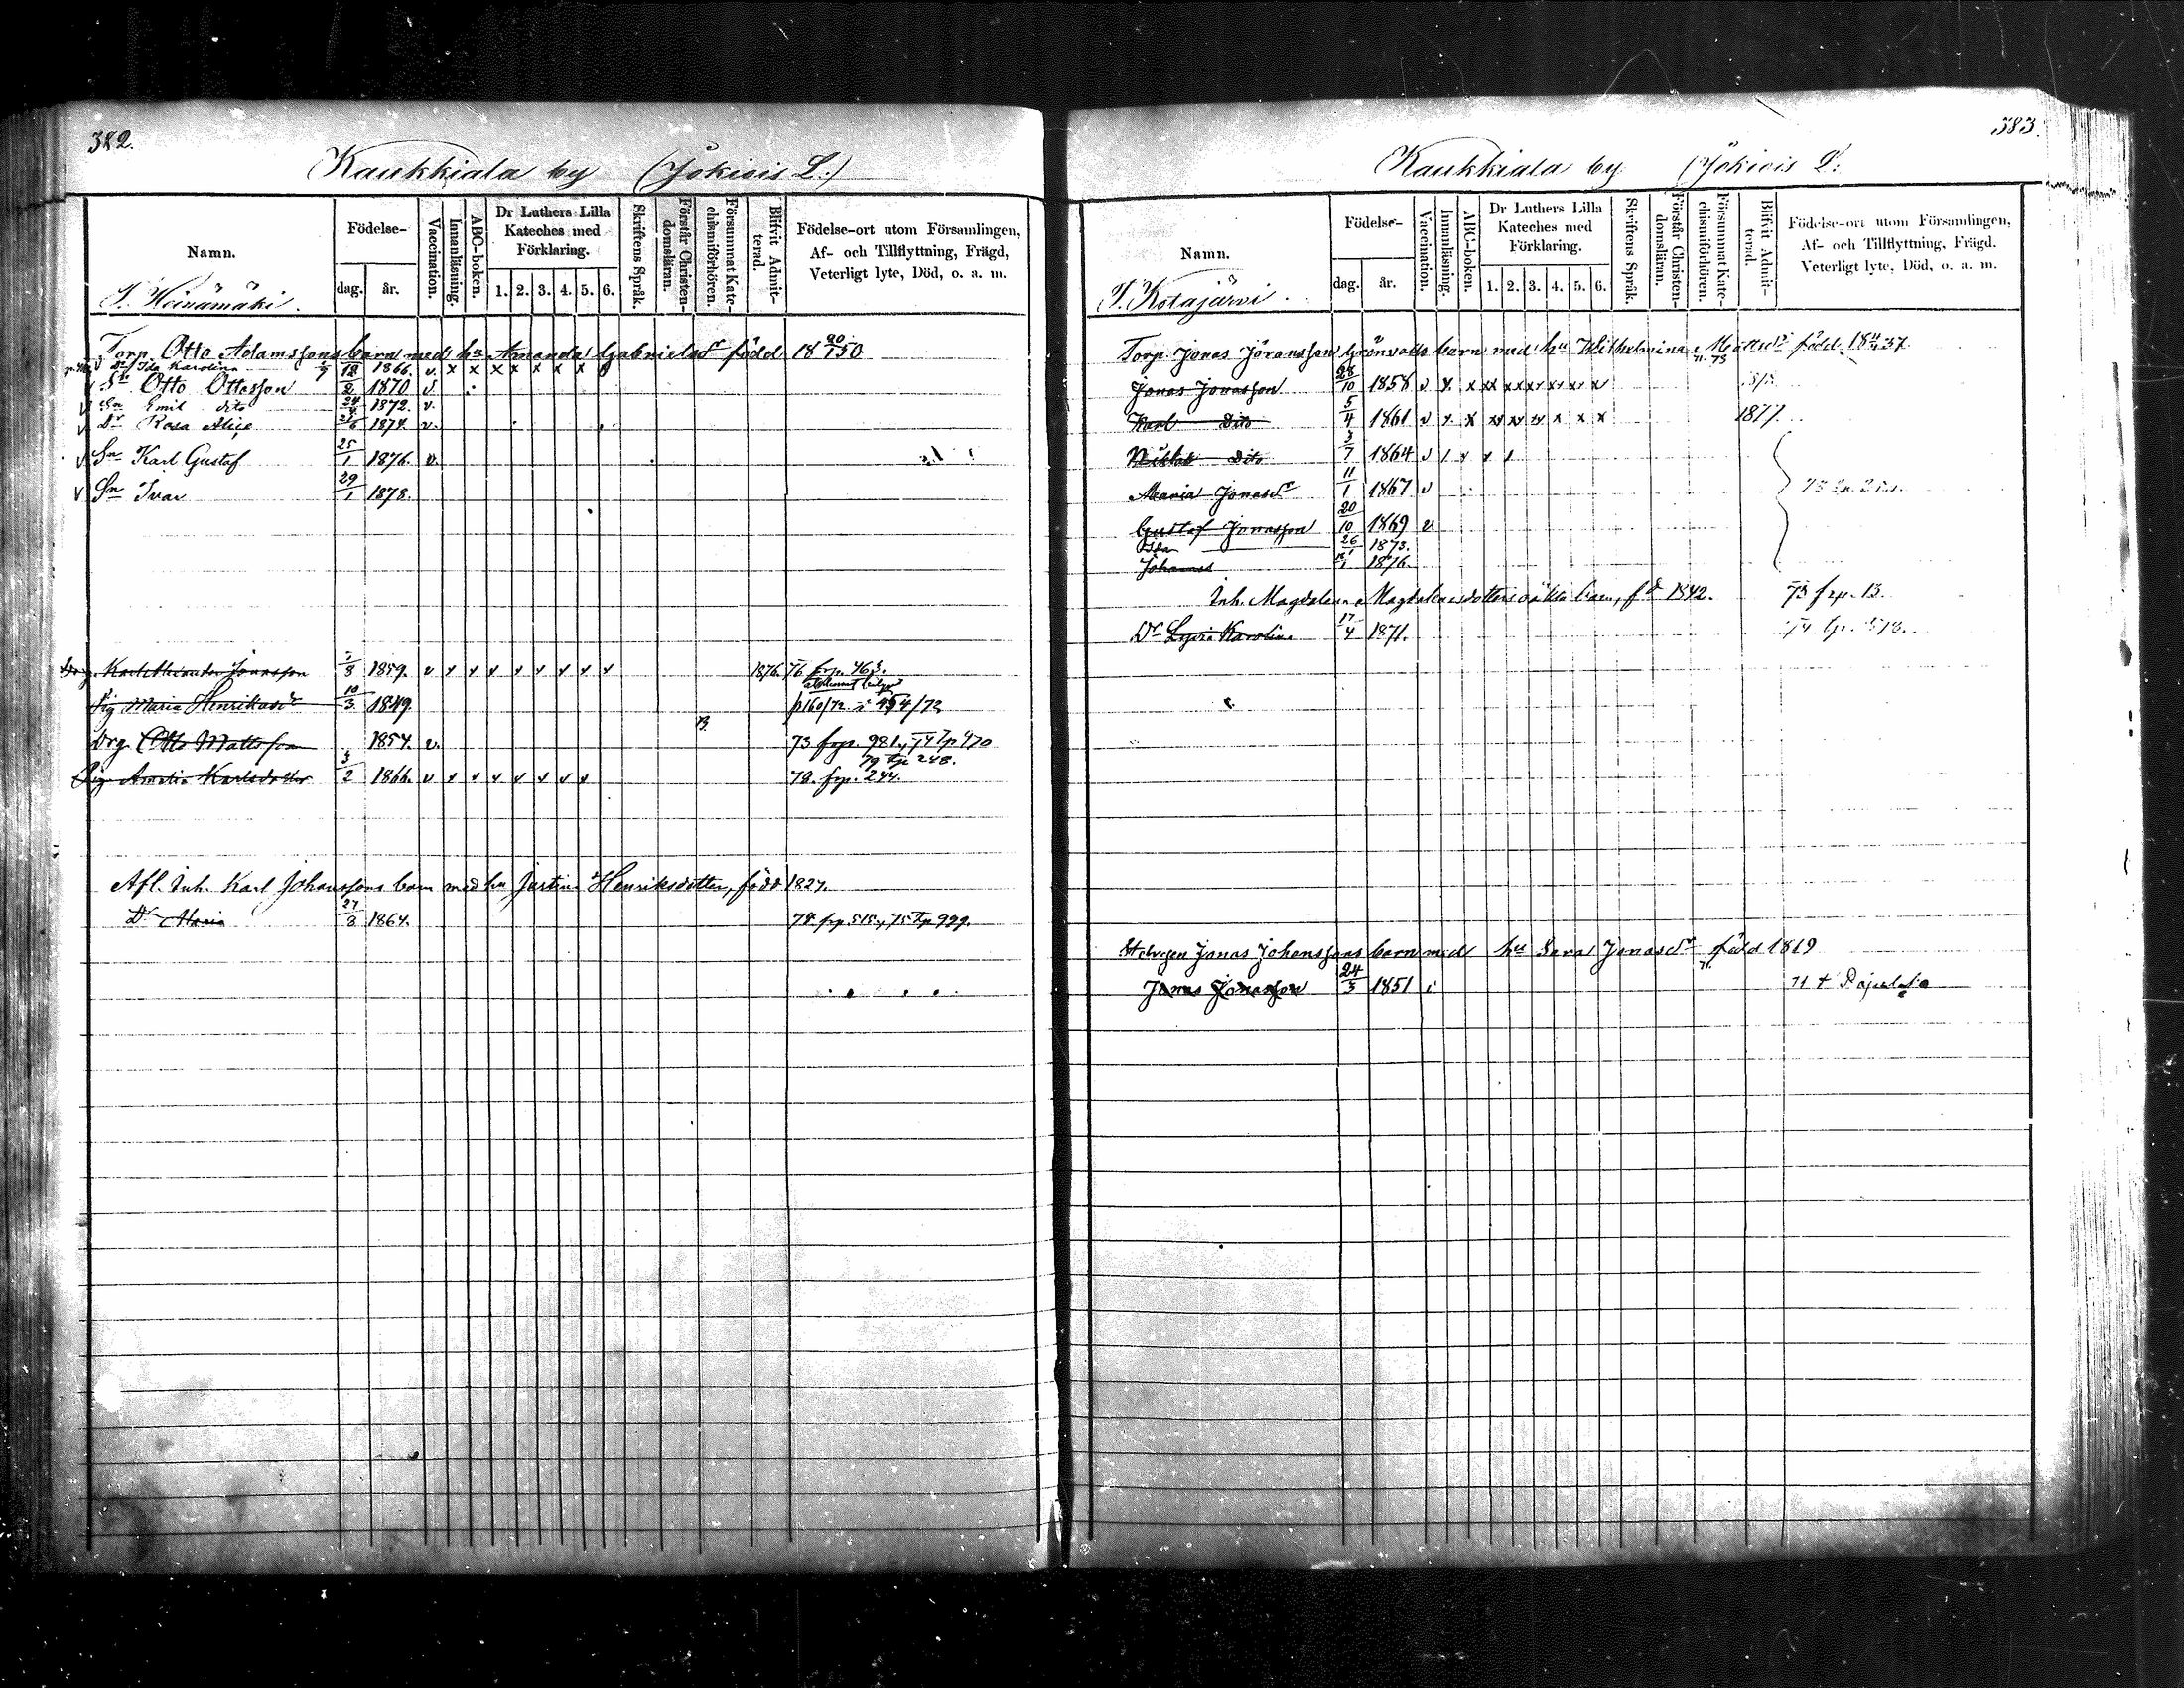 382.
Kaukkiala by (Jokiois L:)
Namn.
Födelse-
dag. år.
Vaccination.
Innanläsning.
ABC-boken.
Dr Luthers Lilla Kateches med Förklaring.
1. 2. 3. 4. 5. 6.
Skriftens Språk.
Förstår Christendomsläran.
Försummat Katechismiförhören.
Blifvit Admitterad.
Födelse-ort utom Församlingen, Af- och Tillflyttning, Frägd, Veterligt lyte, Död, o. a. m.
T. Heinämäki.
Torp. Otto Adamssons barn med hu Amanda Gabrielsdr född 18 50
Dr Ida Karolina 1866. v. x x x x x x x
Sn Otto Ottosson 1870 v.
Sn Emil dito 24/4 1872. v.
Dr Rosa Alice 1874. v.
Sn Karl Gustaf 25/1 1876. v.
Sn Ivar 29/1 1878.
Drg. Karl Alexander Jonasson 1859. v v v v v v v v v 1876. 76 frp. 463.
Pig Maria Henriksdr 10/3 1849. p160/72 i 494/72
B.
Drg Otto Mattsson 1854. v. 73 frp. 981, 74 Tp 470
79 Tp 248.
Pig Amalia Karlsdotter 3/2 1866. v v v v v v v v 78. frp. 244.
Afl. Inh. Karl Johanssons barn med hu Justina Henriksdotter, född 1827.
Dr Maria 27/3 1864. 74 frp 515, 75 Tp 929.
383.
Kaukkiala by (Jokiois L:
Namn.
Födelse-
dag. år.
Vaccination.
Innanläsning.
ABC-boken.
Dr Luthers Lilla Kateches med Förklaring.
1. 2. 3. 4. 5. 6.
Skriftens Språk.
Förstår Christendomsläran.
Försummat Katechismiförhören.
Blifvit Admitterad.
Födelse-ort utom Församlingen, Af- och Tillflyttning, Frägd. Veterligt lyte, Död, o. a. m.
T. Kotajärvi.
Torp. Jonas Göransson Grönvalls barn med hu Wilhelmina Mattsdr född 18 37.
Jonas Jonasson 28/10 1858 v x x xx xx xx xx xx x
Karl Dito 5/4 1861 v x x xx xx xx x x x 1877.
Dito 3/7 1864 v
Maria Jonasdr 11/1 1867 v
Gustaf Jonasson 20/10 1869 v
26/1 1873.
Johannes 1876.
Inh. Magdalena Magdalenasdotters oäkta barn, fd 1842. 73 frp. 13.
Dr Lydia Karolina 17/4 1871.
Statdrgen Jonas Johanssons barn med hu Sara Jonasdr född 1819
Jonas Jonasson 24/3 1851 71 +